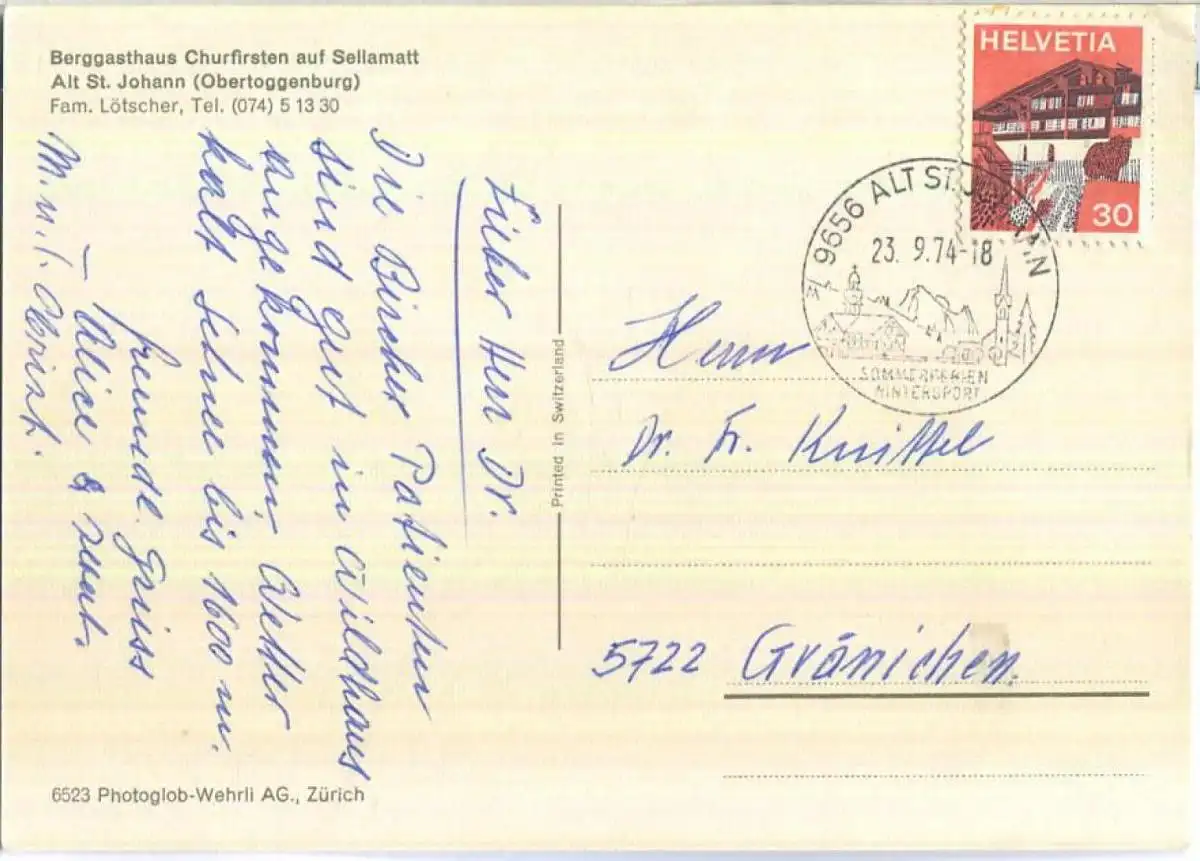 Berggasthaus Churfirsten auf Sellamatt
Alt St. Johann (Obertoggenburg)
Fam. Lötscher, Tel. (074) 5 13 30
Lieber Herr Dr.
Die Bircher Patienten
sind gut in Wildhaus
angekommen, Wetter
kalt Schnee bis 1600 m.
freundl Grüss
Alice &
M. u. T. Obrist.
6523 Photoglob-Wehrli AG., Zürich
Printed in Switzerland
HELVETIA
30
9656 ALT ST. JOHANN
23. 9.74-18
SOMMERFERIEN
WINTERSPORT
Herrn
Dr. Fr. Knittel
5722 Gränichen.